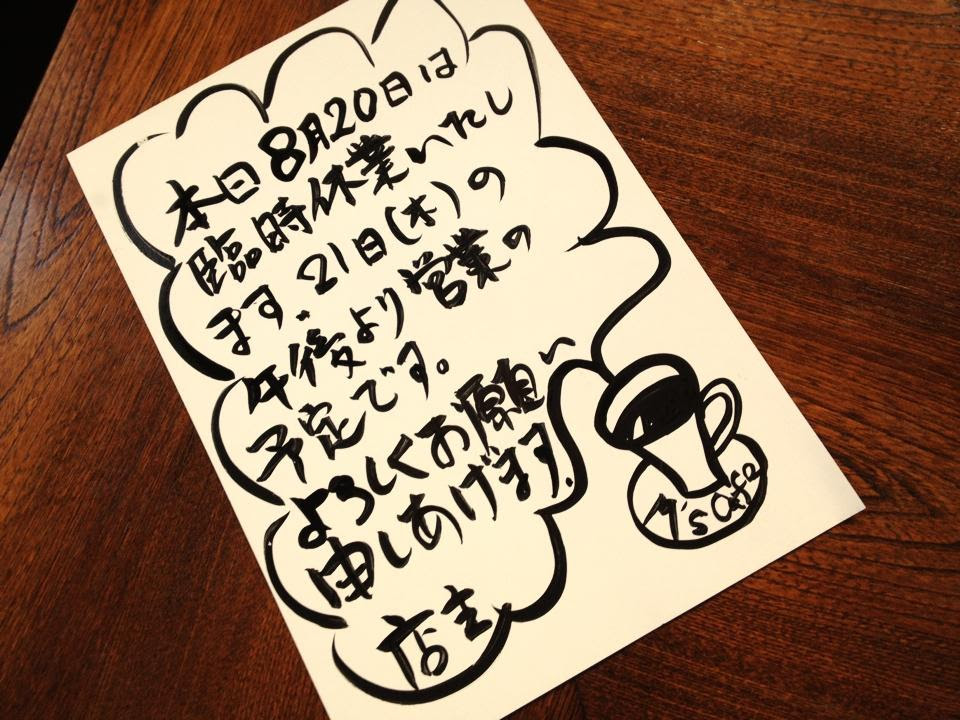 本日8月20日は
臨時休業いたし
ます。21日(木)の
午後より営業の
予定です。
よろしくお願い
申しあげます。
店主
's Cafe